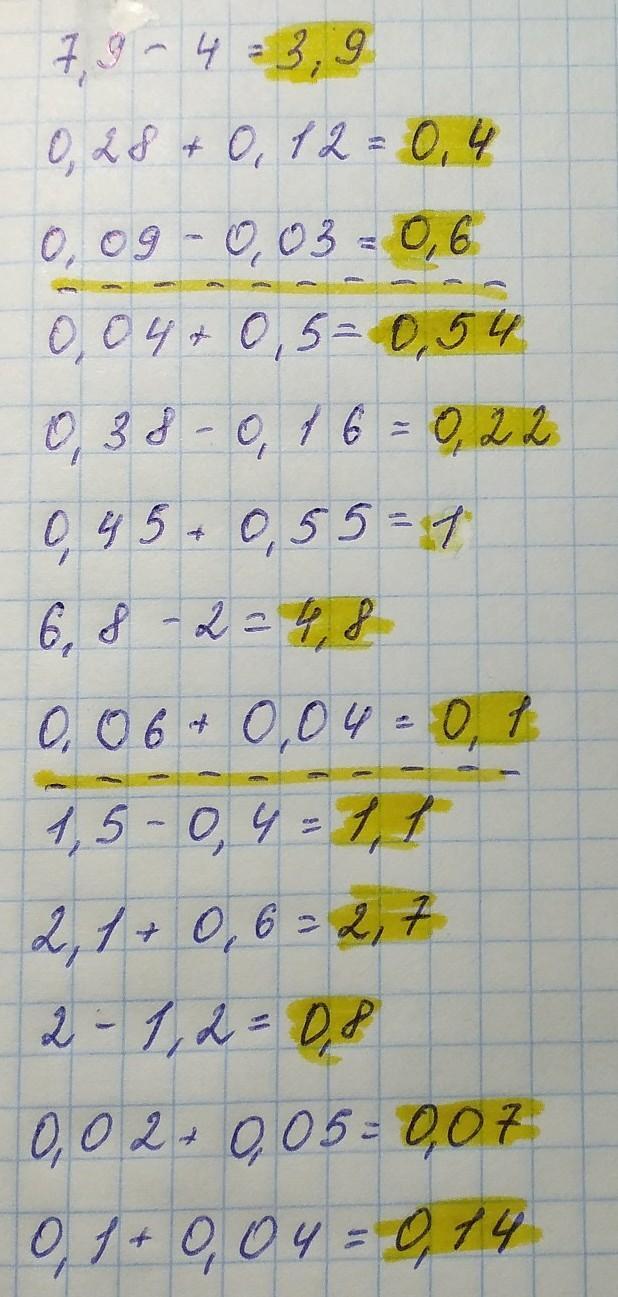 7,9 - 4 = 3,9
0,28 + 0,12 = 0,4
0,09 - 0,03 = 0,6
0,04 + 0,5 = 0,54
0,38 - 0,16 = 0,22
0,45 + 0,55 = 1
6,8 - 2 = 4,8
0,06 + 0,04 = 0,1
1,5 - 0,4 = 1,1
2,1 + 0,6 = 2,7
2 - 1,2 = 0,8
0,02 + 0,05 = 0,07
0,1 + 0,04 = 0,14